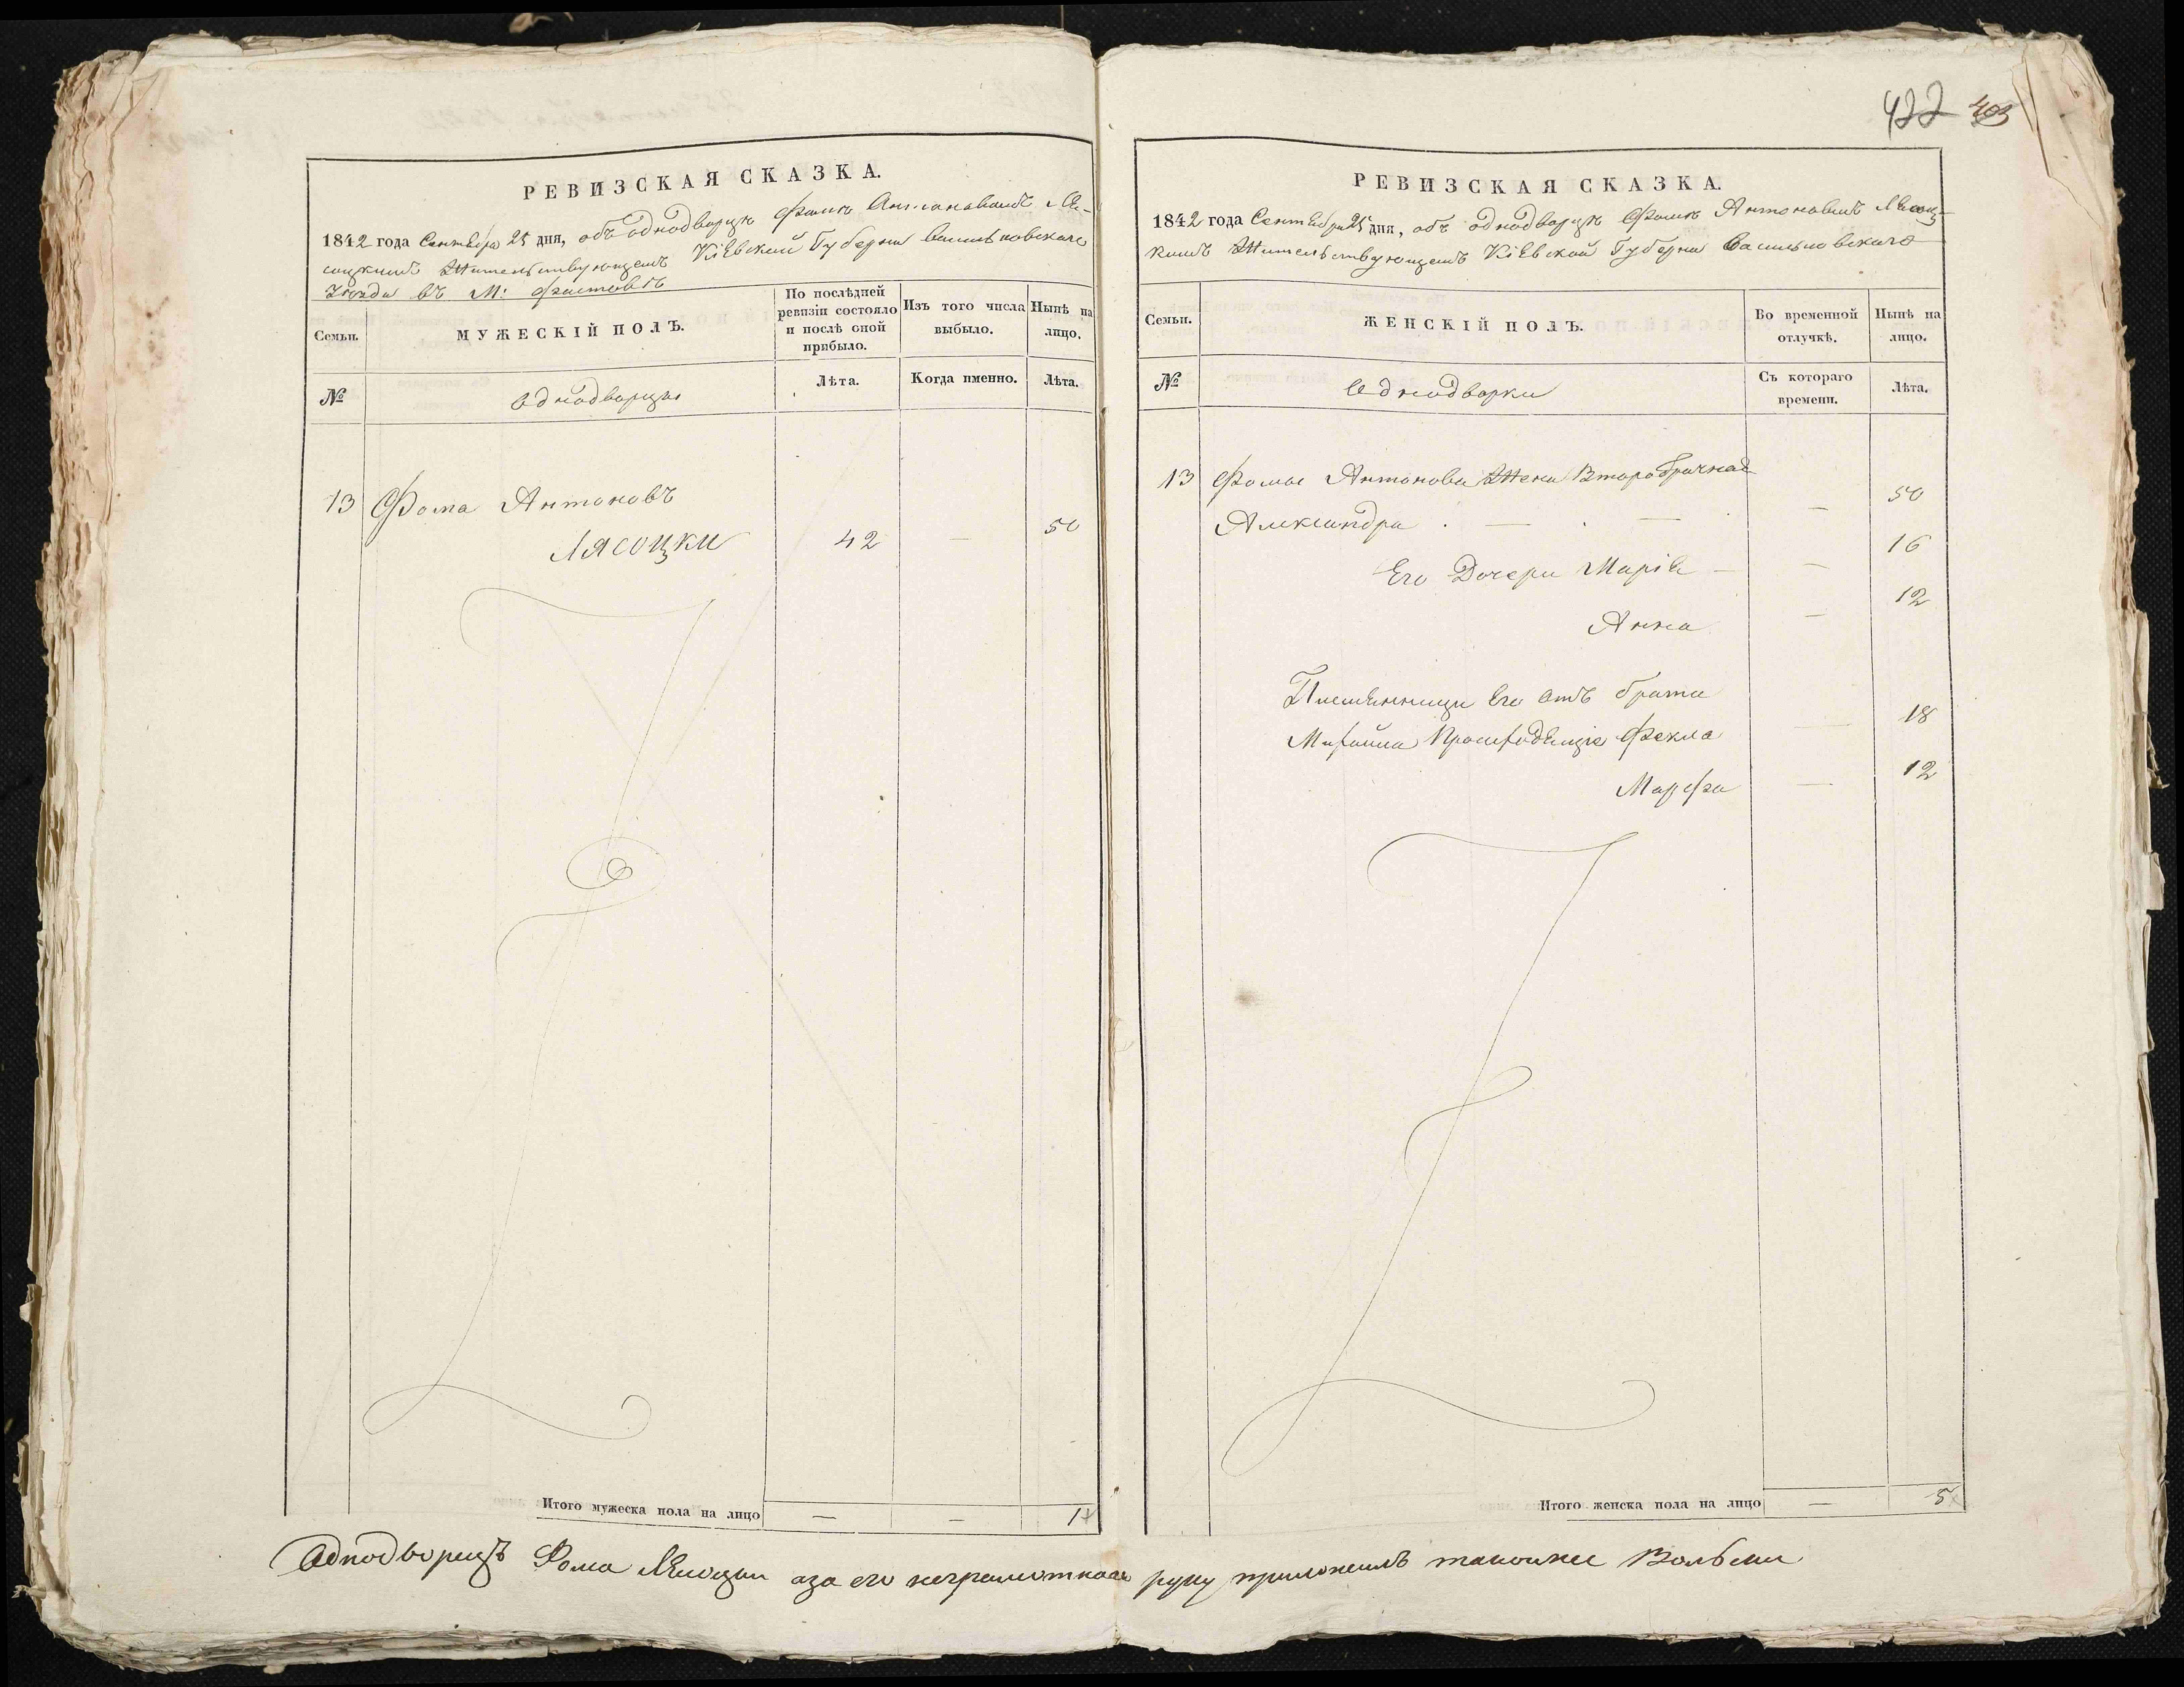 422 403
РЕВИЗСКАЯ СКАЗКА.
1842 года Сентября 25 дня, объ однодворцѣ Фомѣ Антоновомъ Ля-
соцкимъ Жительствующемъ Кіевской Губерніи Васильковскаго
Уѣзда въ М: Фастовѣ
Семьи.
МУЖЕСКІЙ ПОЛЪ.
По послѣдней ревизіи состояло и послѣ оной прибыло.
Изъ того числа выбыло.
Нынѣ на лицо.
№
однодворцы
Лѣта.
Когда именно.
Лѣта.
13 Фома Антоновъ
Лясоцки 42 — 50
Итого мужеска пола на лицо — — 1
РЕВИЗСКАЯ СКАЗКА.
1842 года Сентября 25 дня, объ однодворцѣ Фомѣ Антоновомъ Лясоц-
комъ Жительствующемъ Кіевской Губерніи Васильковскаго
Семьи.
ЖЕНСКІЙ ПОЛЪ.
Во временной отлучкѣ.
Нынѣ на лицо.
№
Однодворки
Съ котораго времени.
Лѣта.
13 Фомы Антонова Жена Второбрачная
Александра — 50
Его Дочери Марія — 16
Анна — 12
Племянницы Его отъ брата
Михайла Произходящіе Фекла — 18
Марфа — 12
Итого женска пола на лицо — 5
Однодворецъ Фома Лясоцки а за его неграмотного руку приложилъ